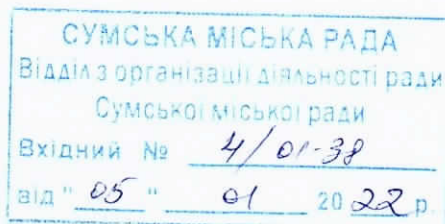 СУМСЬКА МІСЬКА РАДА
Відділ з організації діяльності ради
Сумської міської ради
Вхідний № 4/01-38
від "05" 01 2022 р.